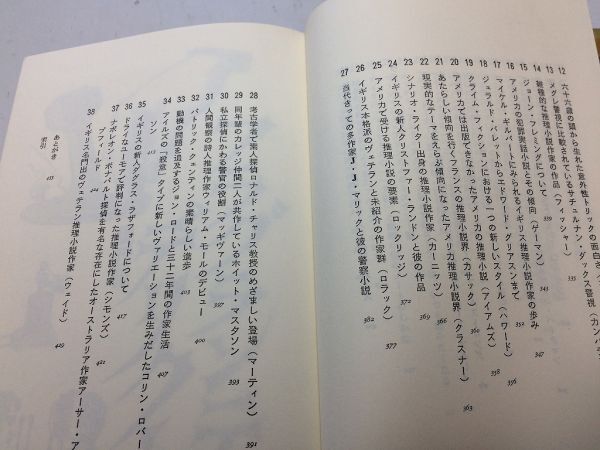 12 六十六歳の頭から生れた意外性トリックの面白さ（カンパ
13 メグレ警視に比較されているサチュルナン・ダックス警視
14 雑種的な推理小説作家の作品（フィッシャー）
15 ジョーン・フレミングについて
16 アメリカの犯罪実話小説とその傾向（ゲーマン）
17 マイケル・ギルバートにみられるイギリス推理小説作家の歩み
18 ジェラルド・バレットからエドワード・グリアスンまで 352
19 クライム・フィクションにおける一つの新しいスタイル（ハワード） 356
20 アメリカでは出版できなかったアメリカの推理小説（アイアムズ） 358
21 あたらしい傾向を行くフランスの推理小説界（カサック）
22 現実的なテーマをえらぶ傾向になったアメリカ推理小説界（クラスナー） 363
23 シナリオ・ライター出身の推理小説作家（カーニッツ） 366
24 イギリスの新人クリストファー・ランドンと彼の作品 369
25 アメリカで受ける推理小説の要素（ロックリッジ） 372
26 イギリス本格派のヴェテランと未紹介の作家群（ロラック） 377
27 当代きっての多作家J・J・マリックと彼の警察小説 382
28 考古学者で素人探偵ロナルド・チャリス教授のめざましい登場（マーティン） 391
29 同年輩のカレッジ仲間二人が共作しているホイット・マスタスン 393
30 私立探偵にかわる警官の役割（マッギヴァーン）
31 人間観察の詩人推理作家ウィリアム・モールのデビュー 397
32 パトリック・クェンティンの素晴らしい進歩 400
33 動機の問題を追及するジョン・ロードと三十二年間の作家生活 407
34 アイルズの「殺意」タイプに新しいヴァリエーションを生みだしたコリン・ロバー
トスン
35 イギリスの新人ダグラス・ラザフォードについて 417
36 ドライなユーモアで評判になった推理小説作家（シモンズ） 421
37 ナポレオン・ボナパルト探偵を有名な存在にしたオーストラリア作家アーサー・ア
プフィールド
38 イギリス名門出のヴェテラン推理小説作家（ウェイド） 429
あとがき 433
索引